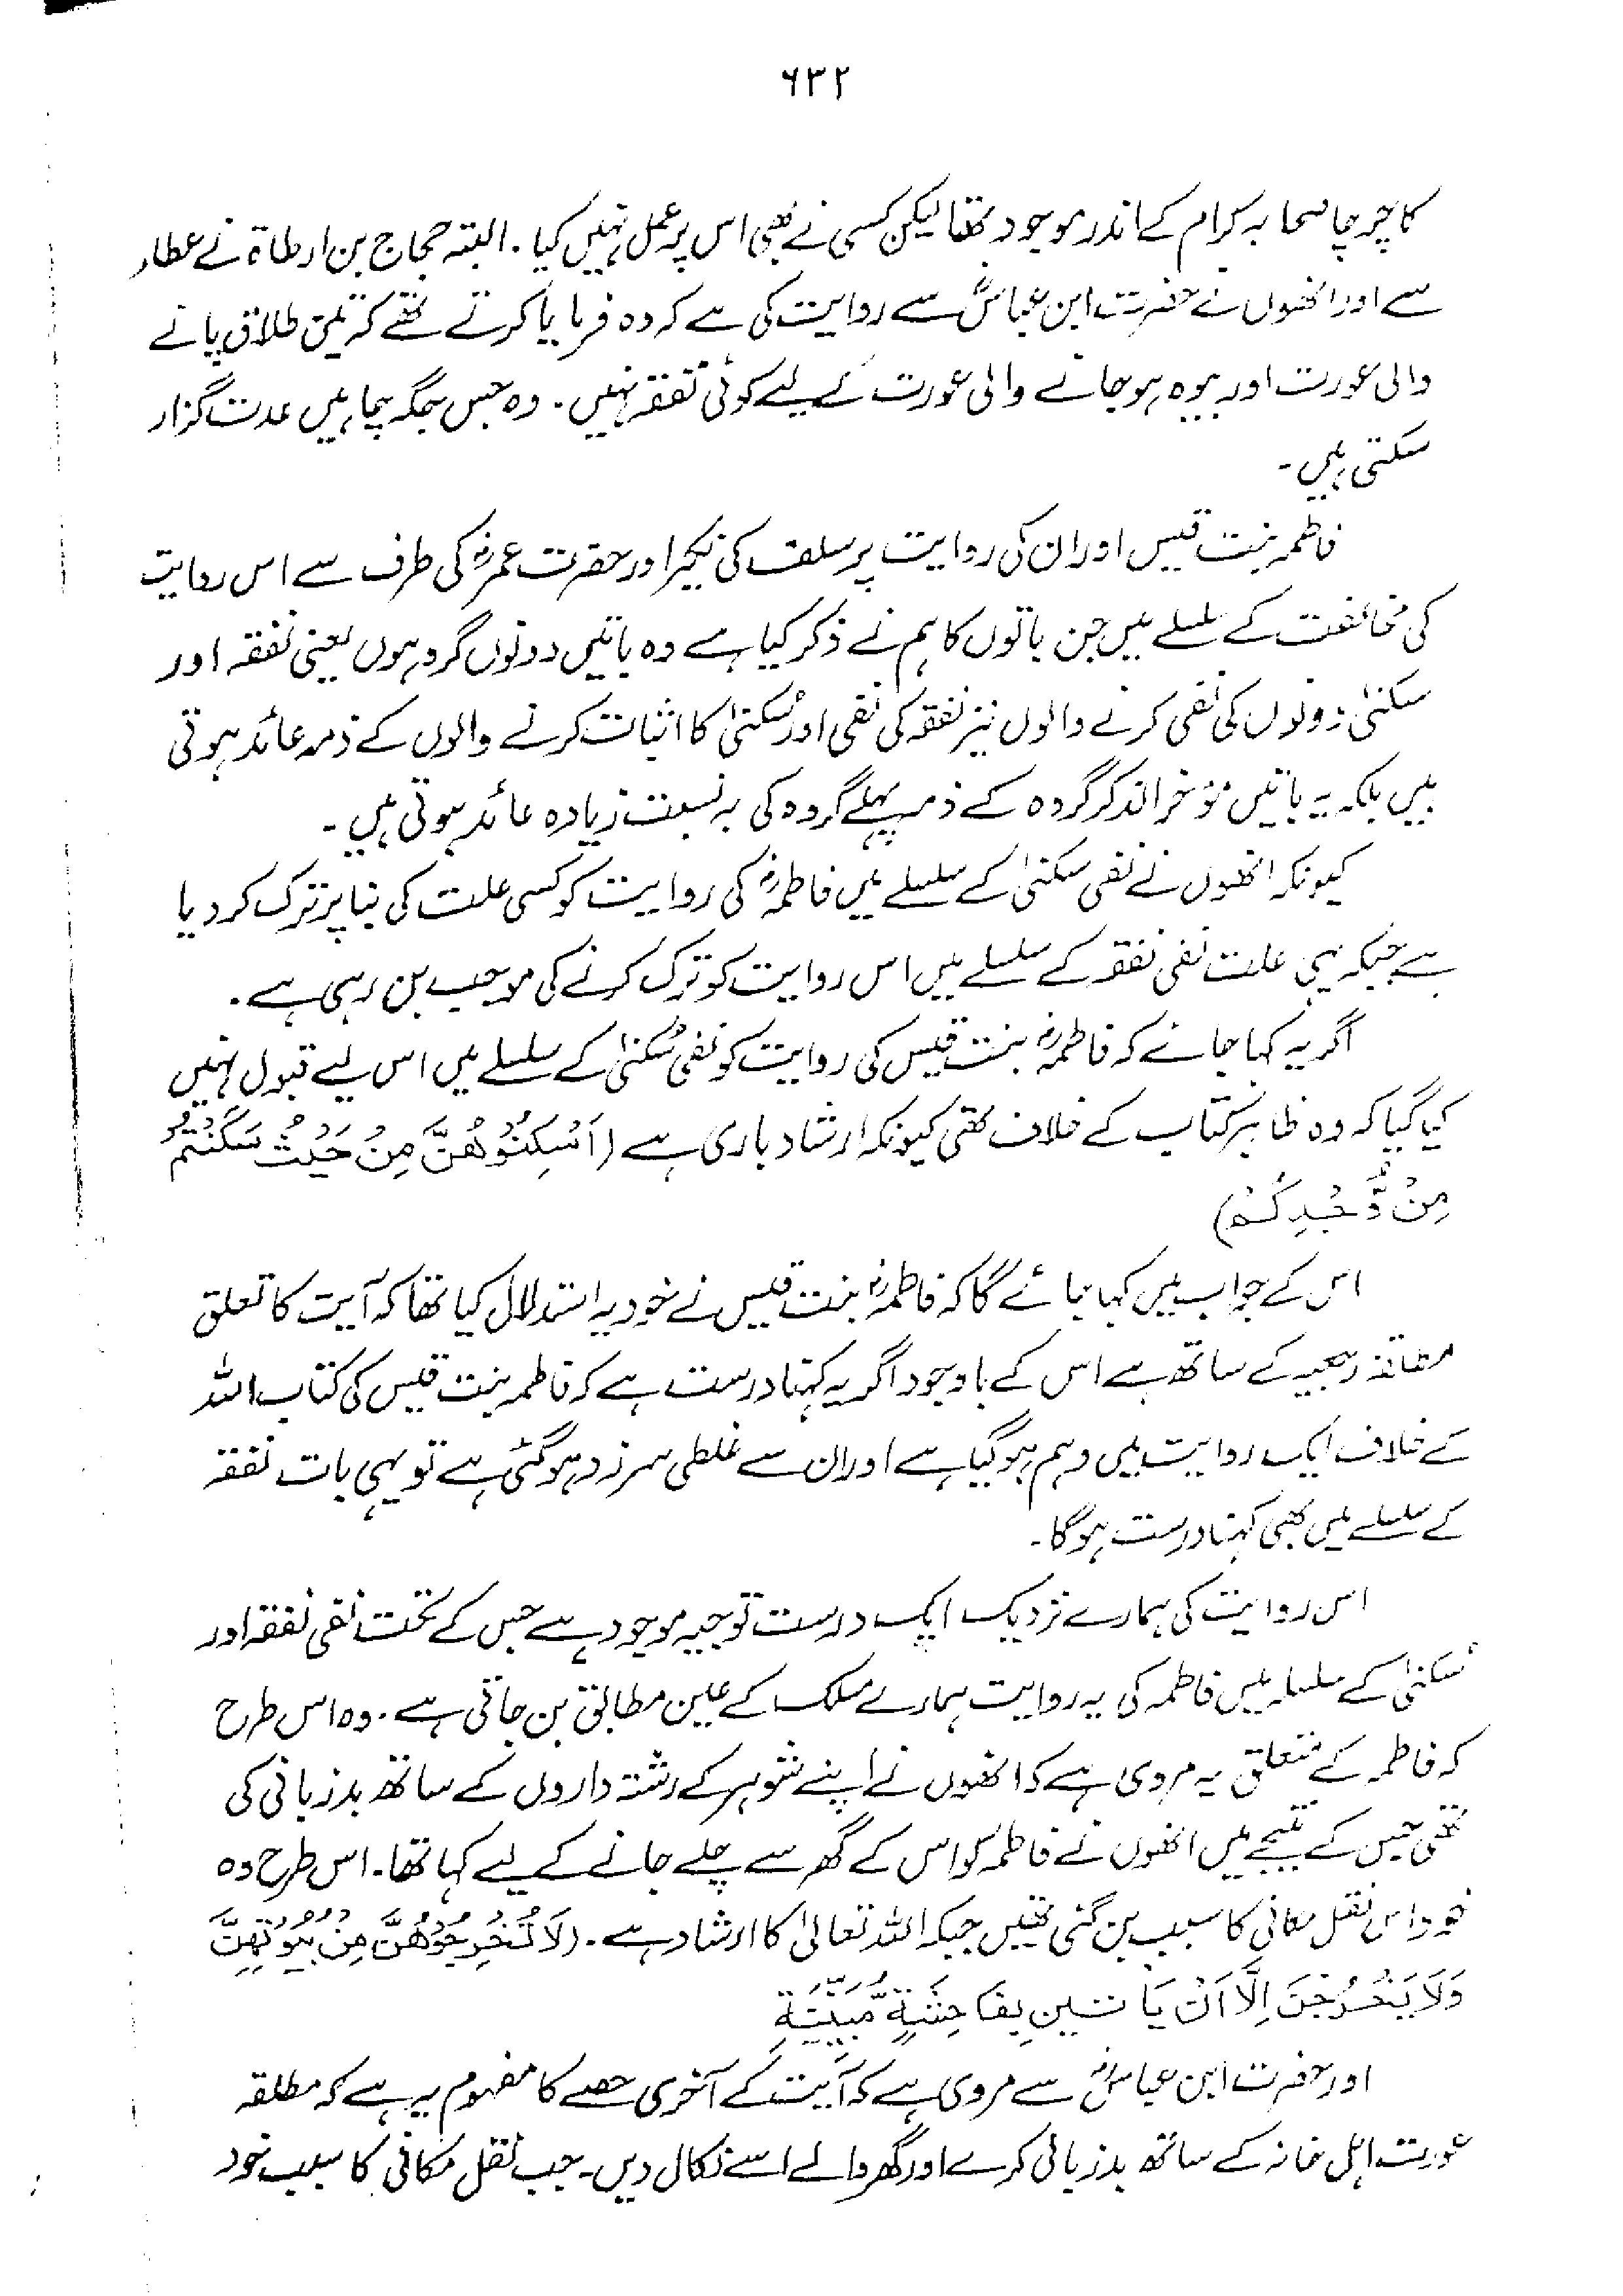 ۶۳۲
کا چرچا صحابہ کرام کے اندر موجود تھا لیکن کسی نے بھی اس پر عمل نہیں کیا۔ البتہ حجاج بن ارطاۃ نے عطاء
سے اور انھوں نے حضرت ابن عباسؓ سے روایت کی ہے کہ وہ فرمایا کرتے تھے کہ تین طلاق پانے
والی عورت اور بیوہ ہو جانے والی عورت کے لیے کوئی نفقہ نہیں۔ وہ جس جگہ چاہیں عدت گزار
سکتی ہیں۔
فاطمہ بنت قیس اور ان کی روایت پر سلف کی نکیر اور حضرت عمرؓ کی طرف سے اس روایت
کی مخالفت کے سلسلے میں جن باتوں کا ہم نے ذکر کیا ہے وہ باتیں دونوں گروہوں یعنی نفقہ اور
سکنیٰ دونوں کی نفی کرنے والوں نیز نفقہ کی نفی اور سُکنیٰ کا اثبات کرنے والوں کے ذمہ عائد ہوتی
ہیں بلکہ یہ باتیں مؤخر الذکر گروہ کے ذمہ پہلے گروہ کی بہ نسبت زیادہ عائد ہوتی ہیں۔
کیونکہ انھوں نے نفی سکنیٰ کے سلسلے میں فاطمہؓ کی روایت کو کسی علت کی بنا پر ترک کر دیا
ہے جبکہ یہی علت نفی نفقہ کے سلسلے میں اس روایت کو ترک کرنے کی موجب بن رہی ہے۔
اگر یہ کہا جائے کہ فاطمہؓ بنت قیس کی روایت کو نفی سُکنیٰ کے سلسلے میں اس لیے قبول نہیں
کیا گیا کہ وہ ظاہر کتاب کے خلاف تھی کیونکہ ارشاد باری ہے (اَسْكِنُوْهُنَّ مِنْ حَيْثُ سَكَنْتُمْ
مِنْ وُّجْدِكُمْ)
اس کے جواب میں کہا جائے گا کہ فاطمہؓ بنت قیس نے خود یہ استدلال کیا تھا کہ آیت کا تعلق
مطلقہ رجعیہ کے ساتھ ہے اس کے باوجود اگر یہ کہنا درست ہے کہ فاطمہ بنت قیس کی کتاب اللہ
کے خلاف ایک روایت میں وہم ہو گیا ہے اور ان سے غلطی سرزد ہو گئی ہے تو یہی بات نفقہ
کے سلسلے میں بھی کہنا درست ہو گا۔
اس روایت کی ہمارے نزدیک ایک درست توجیہ موجود ہے جس کے تحت نفی نفقہ اور
سُکنیٰ کے سلسلہ میں فاطمہ کی یہ روایت ہمارے مسلک کے عین مطابق بن جاتی ہے۔ وہ اس طرح
کہ فاطمہ کے متعلق یہ مروی ہے کہ انھوں نے اپنے شوہر کے رشتہ داروں کے ساتھ بدزبانی کی
تھی جس کے نتیجے میں انھوں نے فاطمہ کو اس کے گھر سے چلے جانے کے لیے کہا تھا۔ اس طرح وہ
خود اس نقل مکانی کا سبب بن گئی تھیں جبکہ اللہ تعالیٰ کا ارشاد ہے۔ (لَا تُخْرِجُوْهُنَّ مِنْ بُيُوْتِهِنَّ
وَلَا يَخْرُجْنَ اِلَّا اَنْ يَاتِيْنَ بِفَاحِشَةٍ مُّبَيِّنَةٍ
اور حضرت ابن عباسؓ سے مروی ہے کہ آیت کے آخری حصے کا مفہوم یہ ہے کہ مطلقہ
عورت اہل خانہ کے ساتھ بدزبانی کرے اور گھر والے اسے نکال دیں۔ جب نقل مکانی کا سبب خود